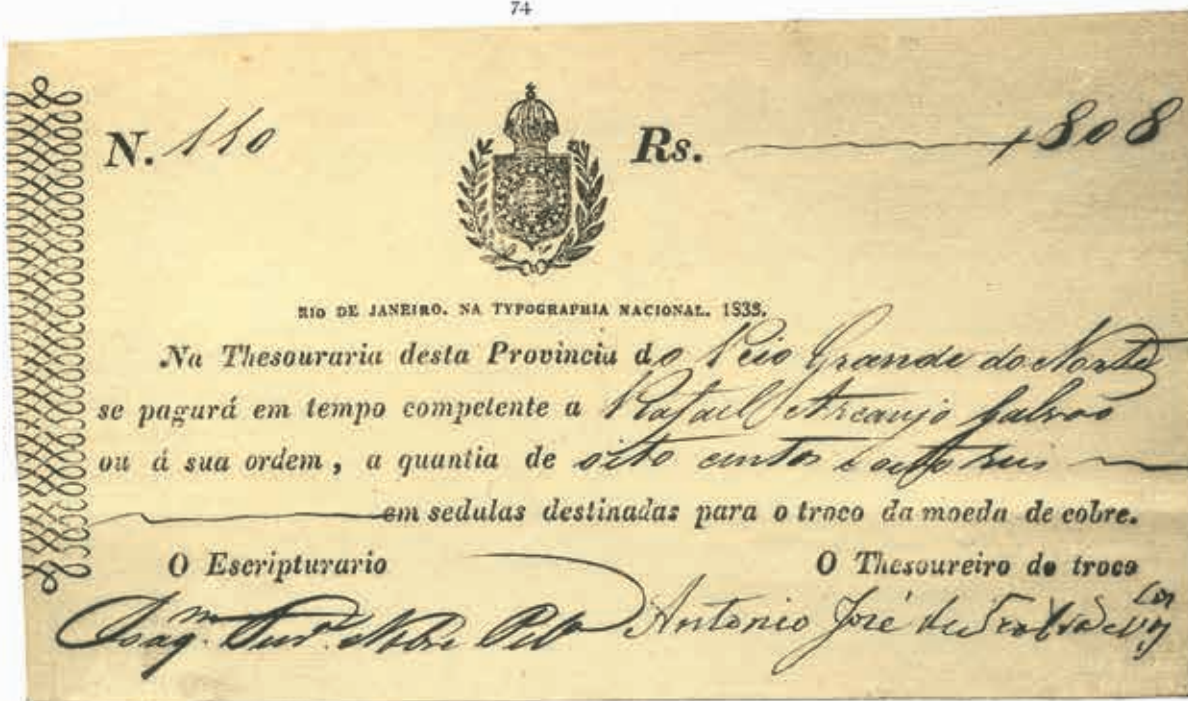 74
N. 110 Rs. 808
RIO DE JANEIRO. NA TYPOGRAPHIA NACIONAL. 1838.
Na Thesouraria desta Provincia do Rio Grande do Norte
se pagará em tempo competente a Rafael Arcanjo Galvão
ou á sua ordem, a quantia de oito centos e oito reis
em sedulas destinadas para o troco da moeda de cobre.
O Escripturario O Thesoureiro do troco
Joaq.^m Nobre Antonio José de